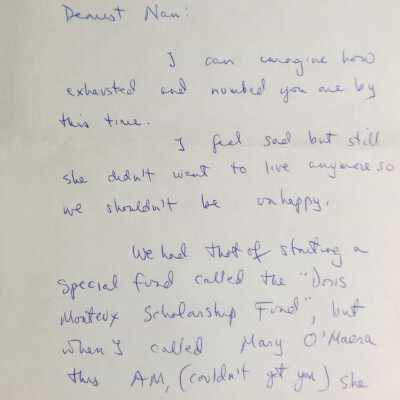 Dearest Nan:
I can imagine how
exhausted and numbed you are by
this time.
I feel sad but still
she didn't want to live anymore so
we shouldn't be unhappy.
We had thot of starting a
special fund called the "Doris
Monteux Scholarship Fund", but
when I called Mary O'Meara
this AM, (couldn't get you) she